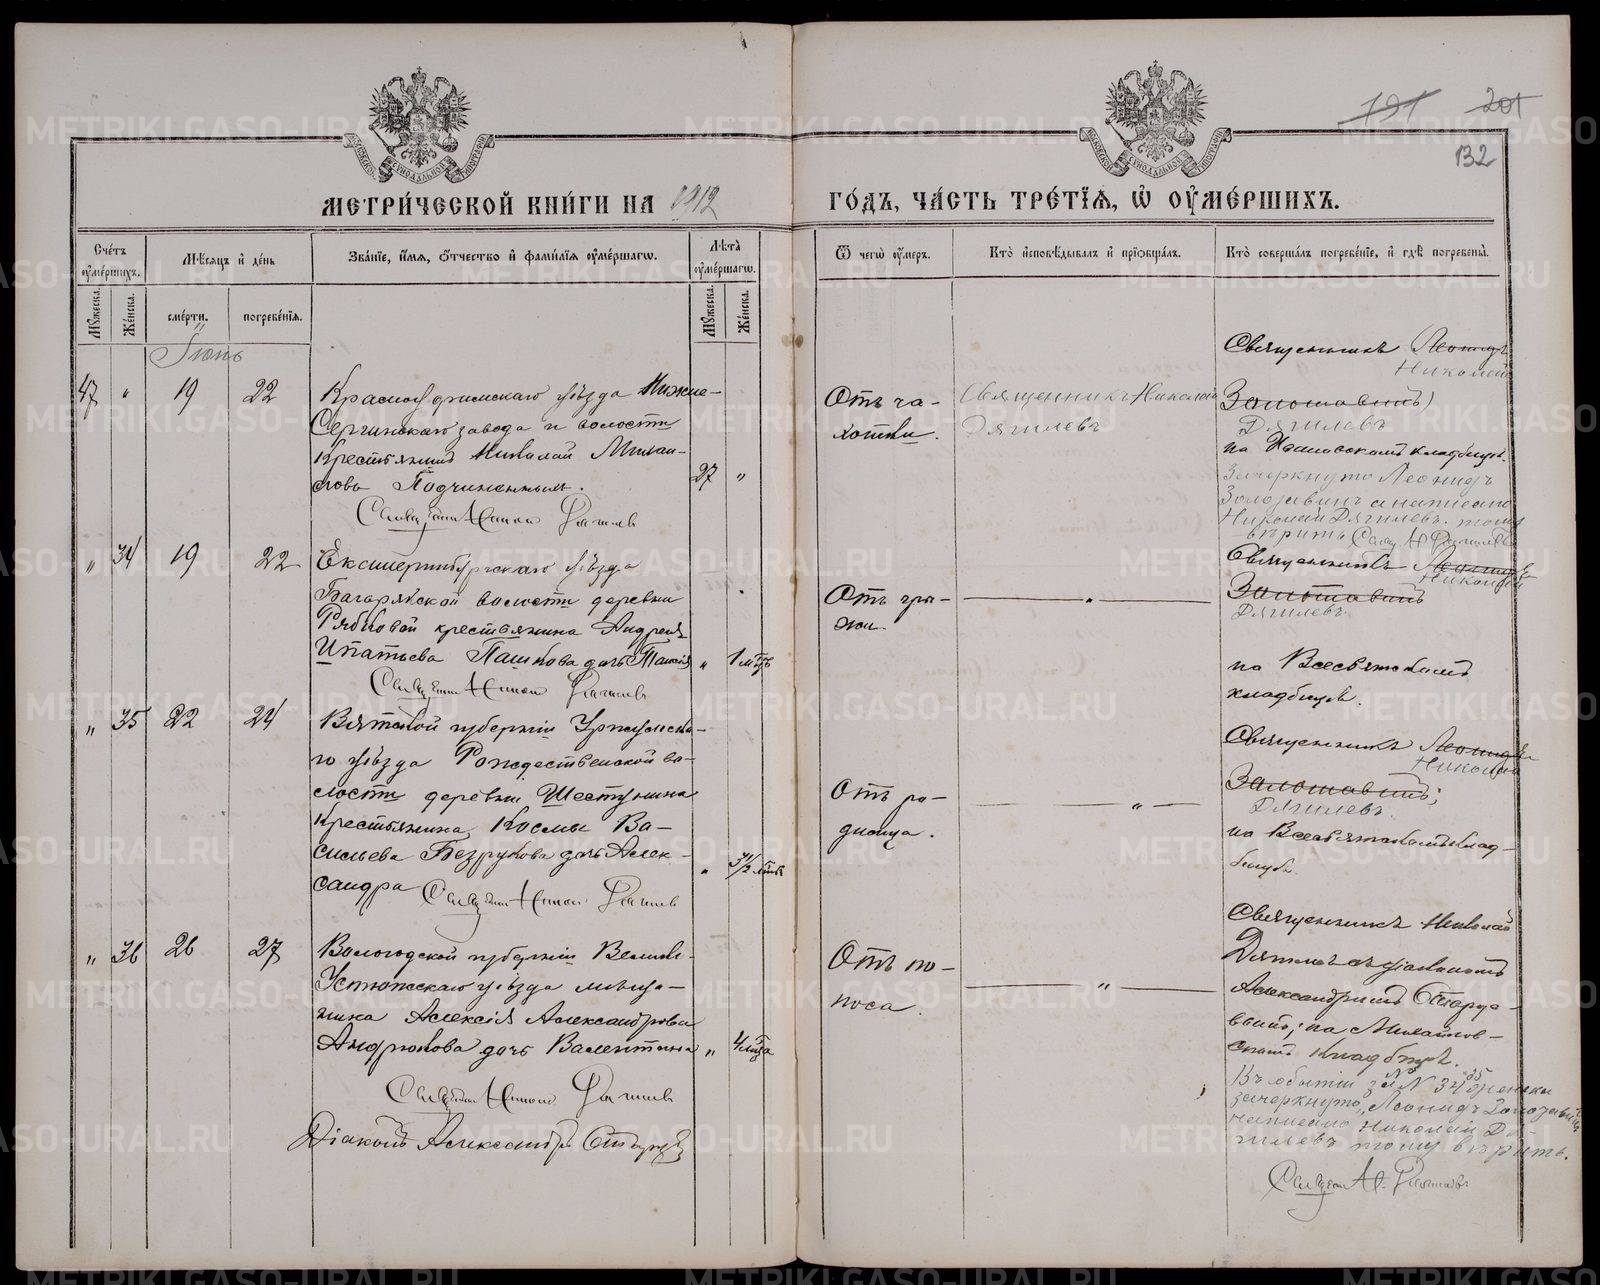 191 201
132
МЕТРИ́ЧЕСКОЙ КНИ́ГИ НА 1912 ГО́ДЪ, ЧА́СТЬ ТРЕ́ТЇѦ, Ѡ ОУ҆МЕ́РШИХЪ.
Счетъ оумершихъ.
Мꙋжеска.
Женска.
Мѣсѧцъ и день
смерти.
погребенїѧ.
Званїе, имѧ, отчество и фамилїѧ оумершагѡ.
Лѣта оумершагѡ.
Мꙋжеска.
Женска.
Ѿ чегѡ оумеръ.
Кто исповѣдывалъ и прїобщалъ.
Кто совершалъ погребенїе, и гдѣ погребены.
Іюнь
47 " 19 22
Красноуфимскаго уѣзда Нижне-
Сергинскаго завода и волости
крестьянинъ Николай Михаи-
лова Подчиненныхъ.
27 "
Отъ ча-
хотки.
Священникъ Николай
Дягилевъ
Священникъ Леонидъ
Николай
Дягилевъ
на Ивановскомъ кладбищѣ.
Зачеркнуто Леонидъ
а написано
Николай Дягилевъ. тому
вѣрить Свящ. Н. Дягилевъ
" 34 19 22
Екатеринбургскаго уѣзда
Багарякской волости деревни
крестьянина Андрея
Ипатьева Пашкова дочь Таисія
" 1 мѣс
Отъ гры-
жи.
"
Священникъ Леонидъ
Николай
Дягилевъ.
на Всесвятскомъ
кладбищѣ.
" 35 22 24
Вятской губерніи Уржумска-
го уѣзда Рождественской во-
лости деревни Шестунина
крестьянина Космы Ва-
сильева Безрукова дочь Алек-
сандра
" 3½
Отъ ро-
димца.
"
Священникъ Леонидъ
Николай
Дягилевъ.
на Всесвятскомъ клад-
бищѣ.
" 36 26 27
Вологодской губерніи Велико-
Устюжскаго уѣзда мѣща-
нина Алексія Александрова
Андрюкова дочь Валентина
" 4 мѣс
Отъ по-
носа.
"
Священникъ Николай
Дягилевъ съ діакономъ
Александромъ
на Михайлов-
скомъ кладбищѣ.
Въ событіи за № 34 35 женска
зачеркнуто Леонидъ
написано Николай Дя-
гилевъ тому вѣрить.
Діаконъ Александръ